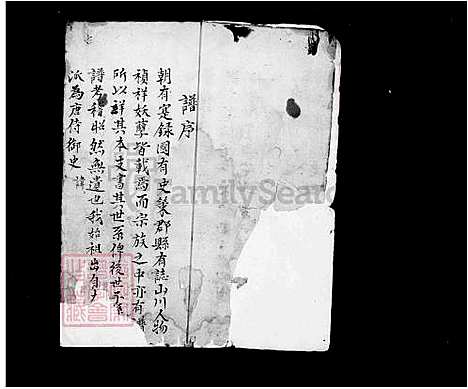 譜序
朝有寔錄國有史冊郡縣有誌山川人物
禎祥妖孽皆載焉而宗族之中亦有譜
所以詳其本支書其世系俾後世子
譜考稽昭然無遺也我始祖出自
派為唐侍御史諱
FamilySearch